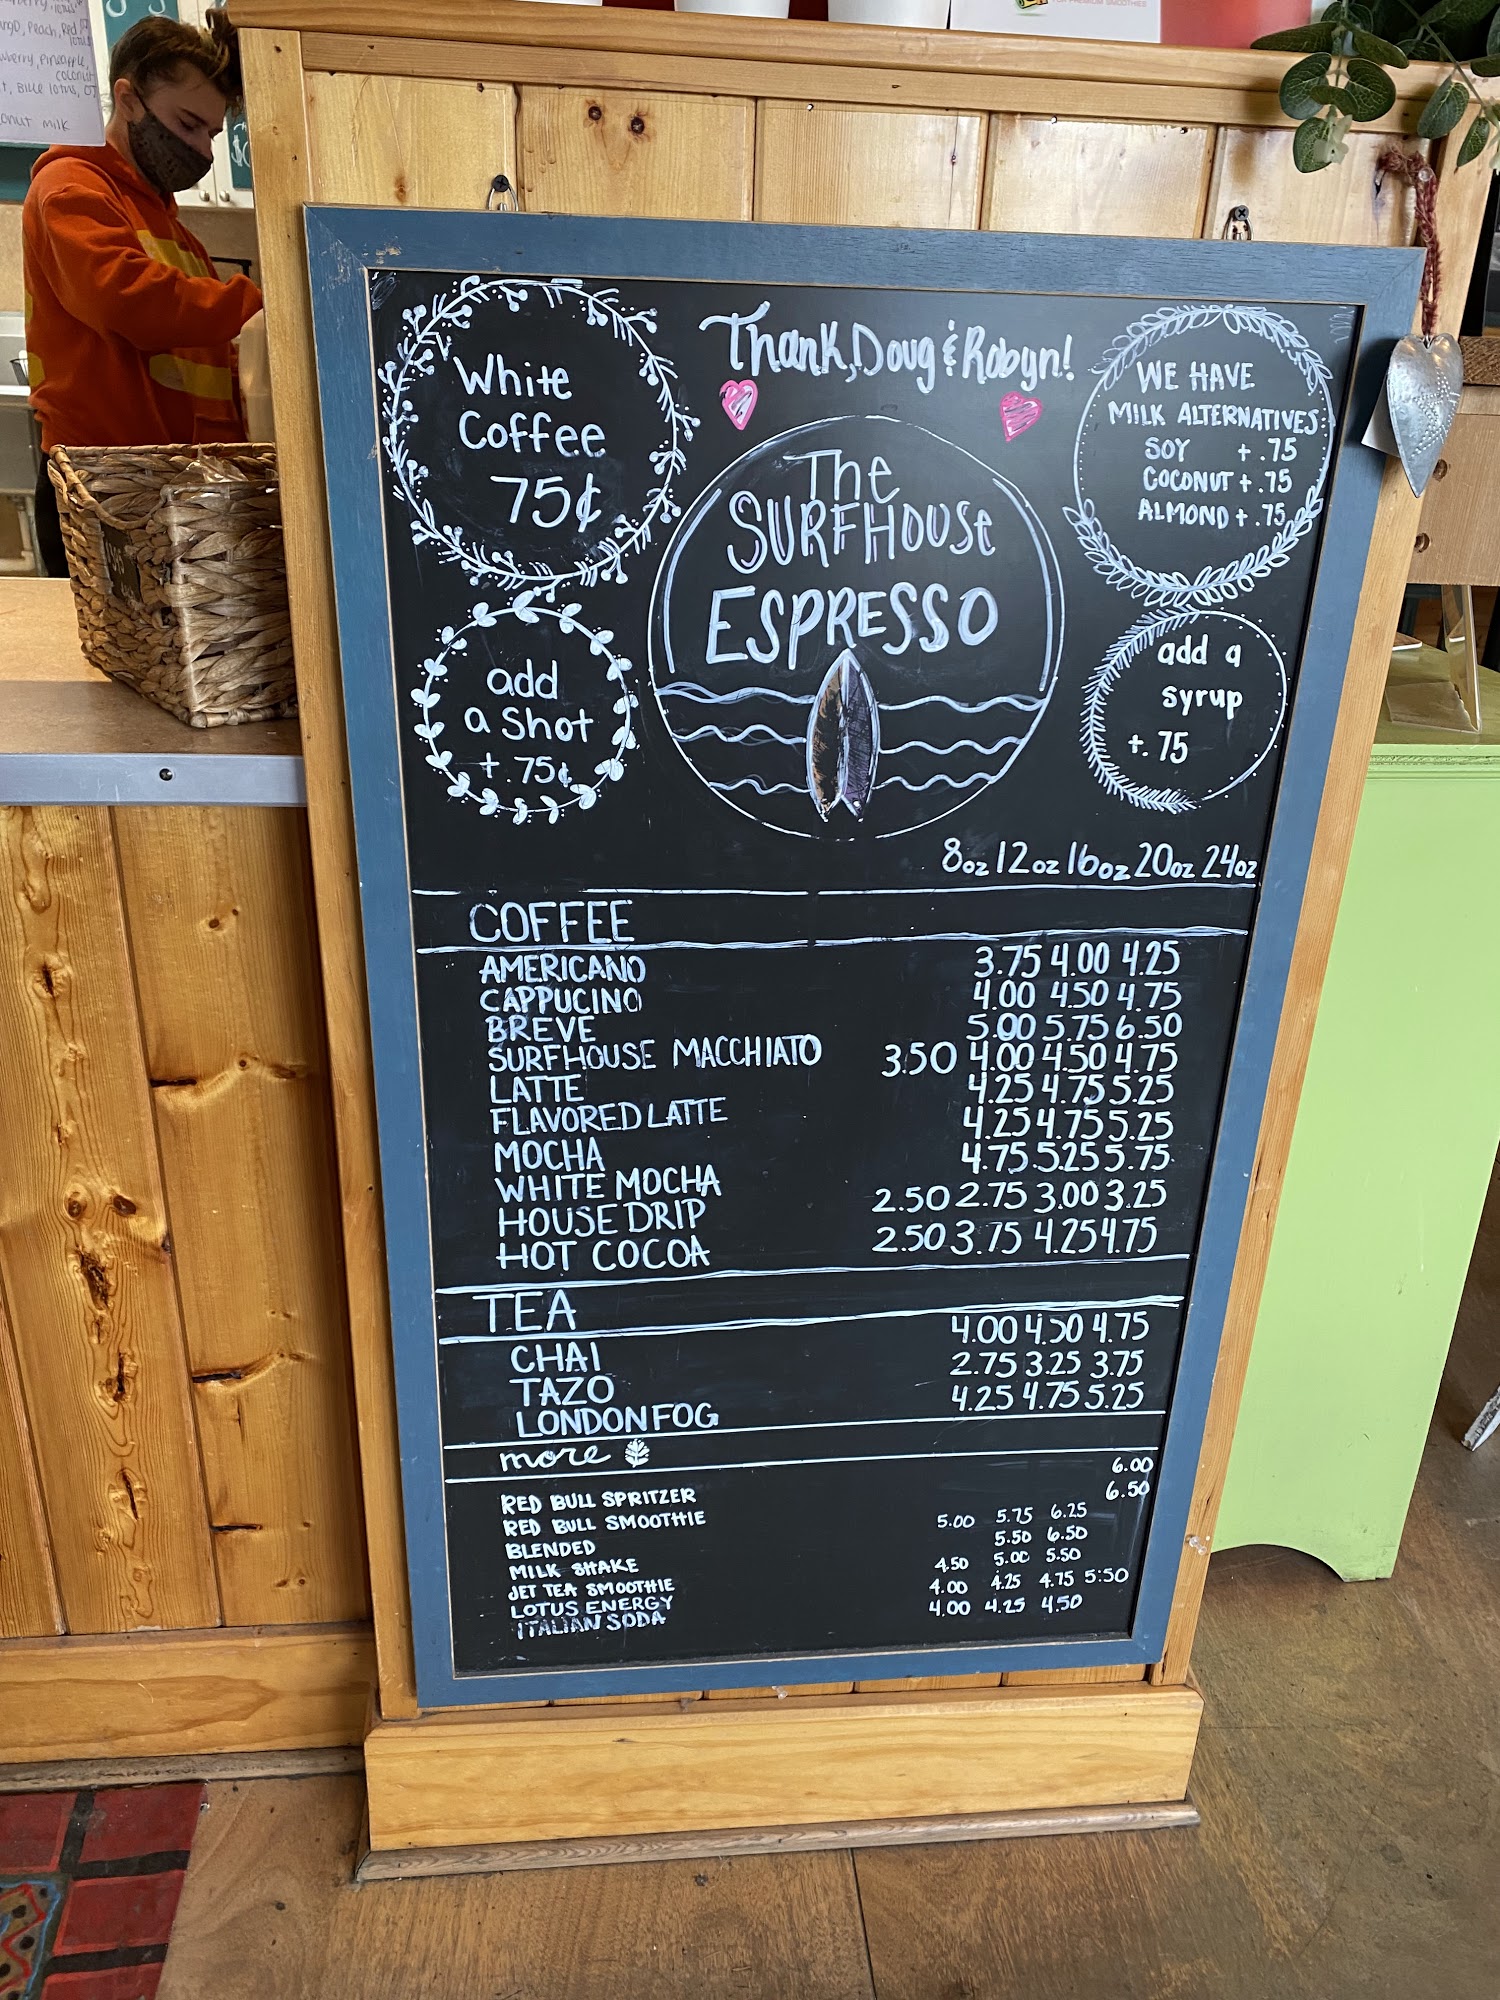 ango, Peach, Red
lotus
coconut
t, Blue lotus, OJ
onut milk
FOR PREMIUM SMOOTHIES
White
Coffee
75¢
Thank, Doug & Robyn!
WE HAVE
MILK ALTERNATIVES:
SOY +.75
COCONUT +.75
ALMOND +.75
The
SURFHOUSE
ESPRESSO
add
a Shot
+.75¢
add a
syrup
+.75
8oz 12oz 16oz 20oz 24oz
COFFEE
AMERICANO 3.75 4.00 4.25
CAPPUCINO 4.00 4.50 4.75
BREVE 5.00 5.75 6.50
SURFHOUSE MACCHIATO 3.50 4.00 4.50 4.75
LATTE 4.25 4.75 5.25
FLAVORED LATTE 4.25 4.75 5.25
MOCHA 4.75 5.25 5.75
WHITE MOCHA
HOUSE DRIP 2.50 2.75 3.00 3.25
HOT COCOA 2.50 3.75 4.25 4.75
TEA
CHAI 4.00 4.50 4.75
TAZO 2.75 3.25 3.75
LONDON FOG 4.25 4.75 5.25
more
RED BULL SPRITZER 6.00
RED BULL SMOOTHIE 6.50
BLENDED 5.00 5.75 6.25
MILK SHAKE 5.50 6.50
JET TEA SMOOTHIE 4.50 5.00 5.50
LOTUS ENERGY 4.00 4.25 4.75 5:50
ITALIAN SODA 4.00 4.25 4.50